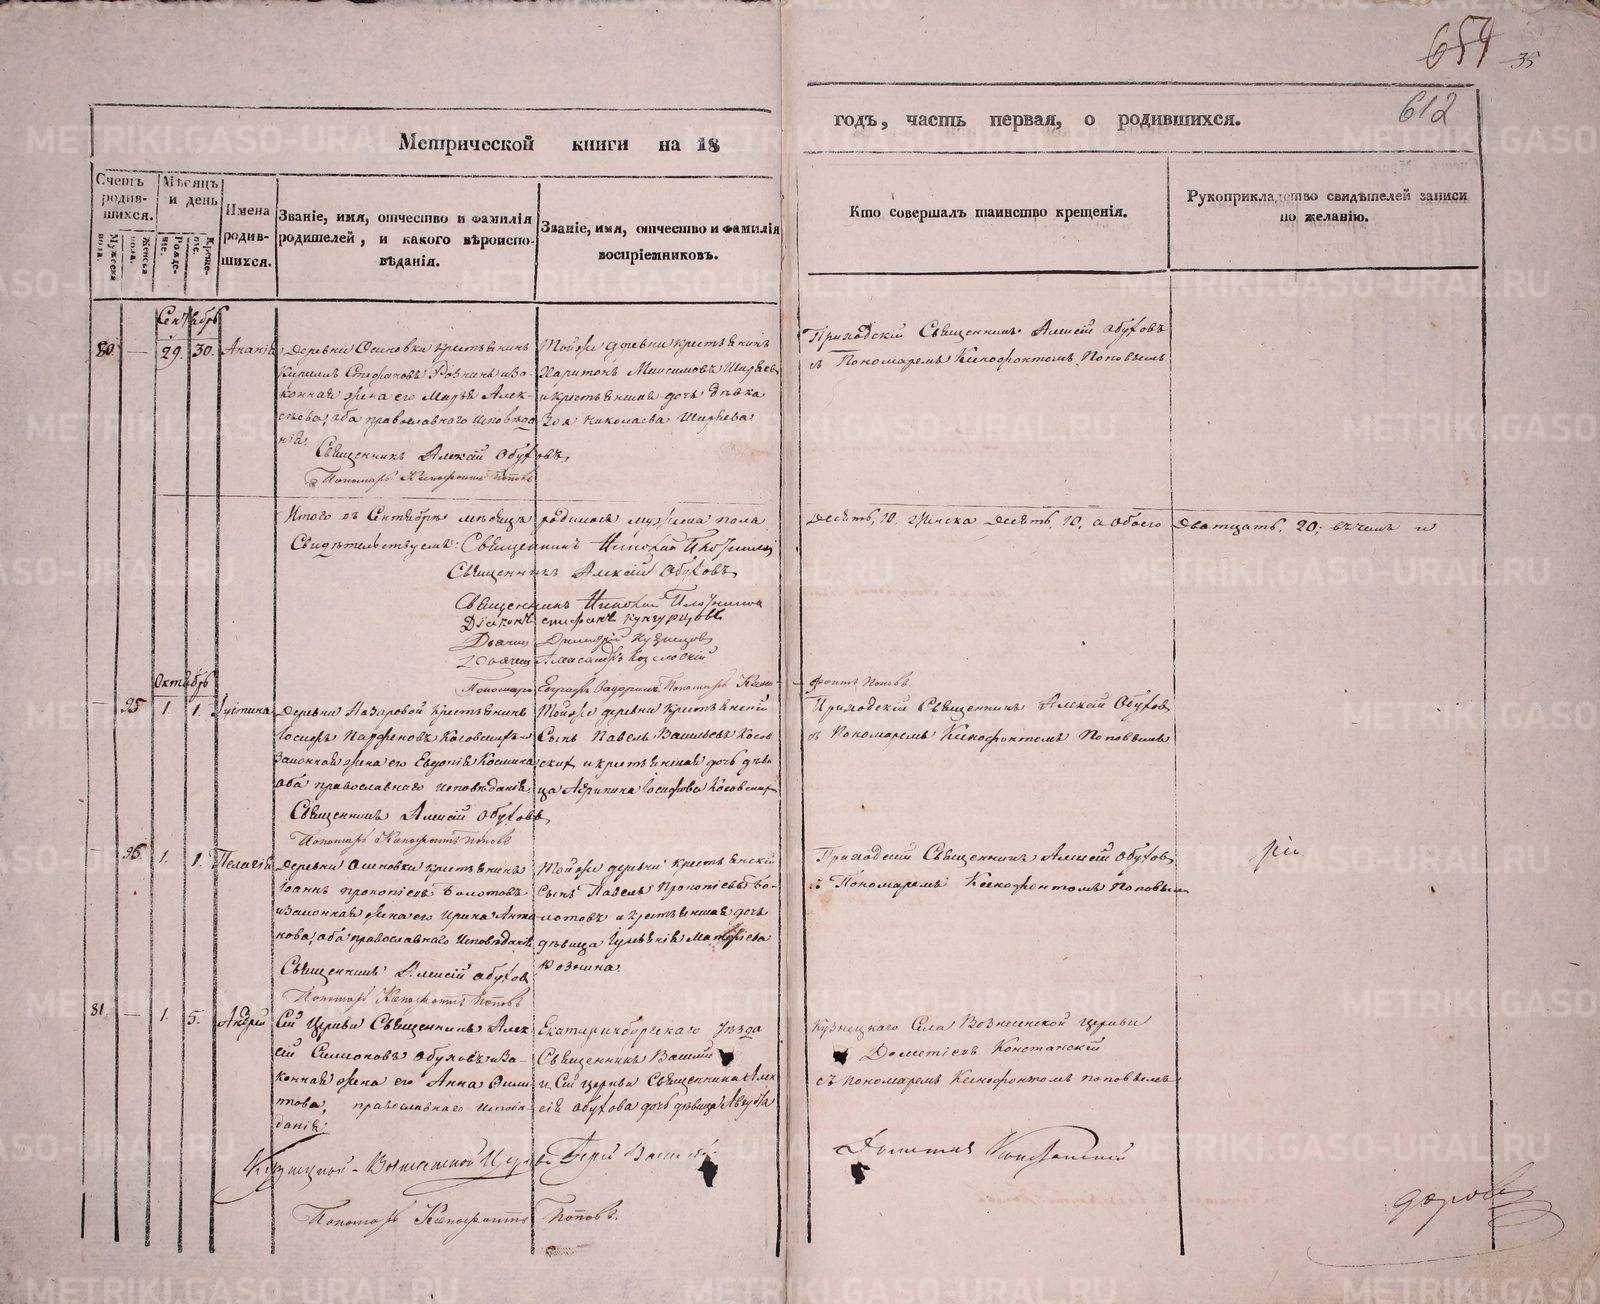 654
35
612
Метрической книги на 18
годъ, часть первая, о родившихся.
Счетъ родив-шихся.
Мужеска пола.
Женска пола.
Мѣсяцъ и день
Рожде-нія.
Креще-нія.
Имена родив-шихся.
Званіе, имя, отчество и фамилія родителей, и какого вѣроиспо-вѣданія.
Званіе, имя, отчество и фамилія воспріемниковъ.
Кто совершалъ таинство крещенія.
Рукоприкладство свидѣтелей записи по желанію.
Сентябрь
80 — 29. 30. Ананія
Деревни Осиновки крестьянинъ
Кириллъ Стефановъ Рознинъ и за-
конная жена его Марѳа Алек-
сѣева, оба православнаго исповѣда
нія.
Священникъ Алексій Обуховъ,
Пономарь Ксенофонтъ Поповъ
Тойже деревни крестьянинъ
Харитонъ Максимовъ Ширяевъ
и крестьянская дочь дѣвка
Зоя Николаева Ширяева
Приходскій Священникъ Алексій Обуховъ
съ Пономаремъ Ксенофонтомъ Поповымъ
Итого въ Сентябрѣ мѣсяцѣ родилось мужеска пола
Десять, 10. женска Десять, 10, а обоего Двадцать, 20; въ чемъ и
Свидѣтельствуемъ: Священникъ Николай
Священникъ Алексій Обуховъ,
Священникъ Николай
Діаконъ Стефанъ Кунгурцовъ
Дьячек Дмитрій Кузнецовъ
Дьячек Александръ Козловскій
Пономарь Евграфъ Пономарь Ксено-
фонтъ Поповъ.
Октябрь
— 95 1. 1. Іустина
Деревни Назаровой крестьянинъ
Іосифъ Парѳеновъ Косовскихъ и
Законная жена его Евдокія Космина
оба православнаго исповѣданія.
Священникъ Алексій Обуховъ,
Пономарь Ксенофонтъ Поповъ
Тойже деревни крестьянскій
Сынъ Павелъ Васильевъ Косов
скихъ и крестьянская дочь дѣви
ца Агрипина Іосифова Косовских
Приходскій Священникъ Алексій Обухов
съ Пономаремъ Ксенофонтомъ Поповымъ
— 96 1. 1. Пелагія
Деревни Осиновки крестьянинъ
Іоаннъ Прокопіевъ Болотовъ
и Законная жена его Ирина Анто
нова, оба православнаго исповѣданія
Священникъ Алексій Обухов
Пономарь Ксенофонтъ Поповъ
Тойже деревни крестьянскій
Сынъ Павелъ Прокопіевъ Бо-
лотовъ и крестьянская дочь
дѣвица Іуліанія Матѳіева
Рознина.
Приходскій Священникъ Алексій Обухов
съ Пономаремъ Ксенофонтомъ Поповымъ
81 — 1. 5. Андрей
Сей Церкви Священникъ Алек
сій Симеоновъ Обуховъ и За-
конная жена его Анна
това, православнаго исповѣ-
данія.
Екатеринбургскаго Уѣзда
Священникъ Василій
и Сей церкви Священника Алек
сія Обухова дочь дѣвица Августа
Кузнецкаго Села Вознесенской Церкви
Дометіевъ Констанскій
съ пономаремъ Ксенофонтомъ Поповымъ
Кузнецкой - Вознесенской Церкви Іерей Василій
Дометіевъ Констанскій
Пономарь Ксенофонтъ Поповъ.
METRIKI.GASO-URAL.RU